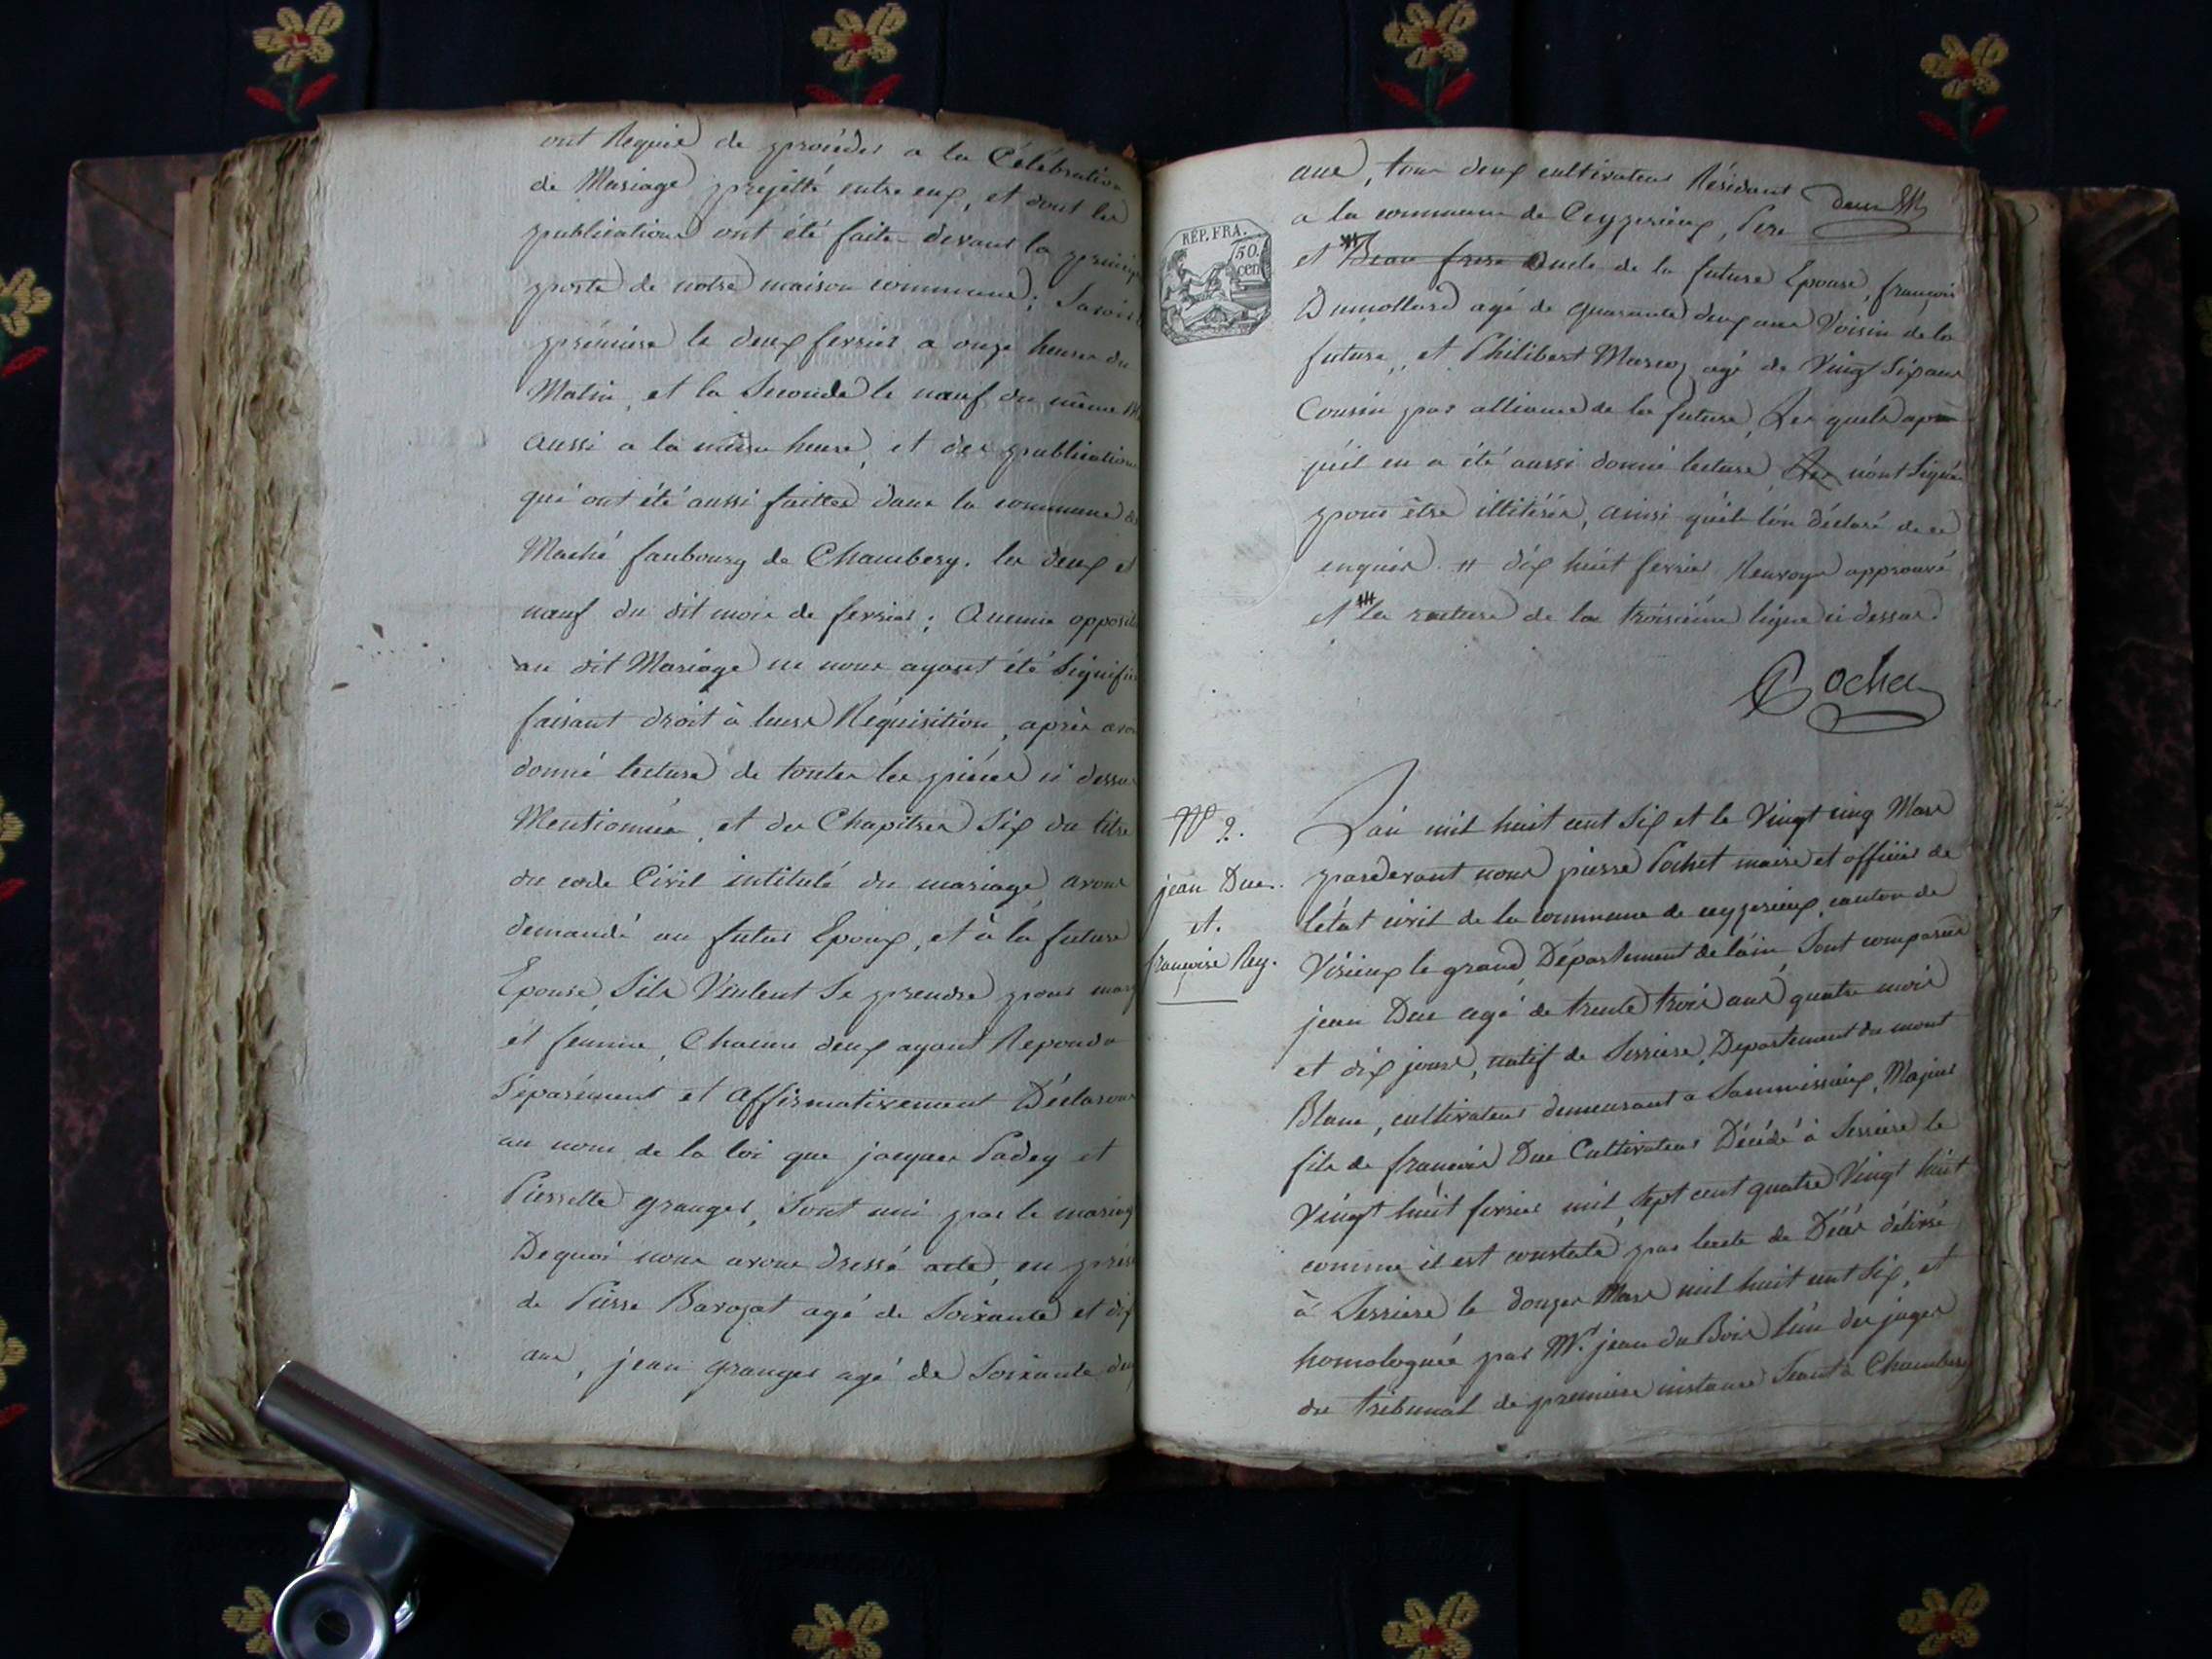 ont Requis de procéder a la Célébration
de Mariage projetté entre eux, et dont les
publications ont été faites devant la princip
porte de notre maison commune; Savoir
première le deux fevrier a onze heures du
Matin, et la Seconde le neuf du même
aussi a la même heure, et des publications
qui ont été aussi faittes dans la commune de
Maché faubourg de Chambery, les deux et
neuf du dit mois de fevrier; Aucune opposit
au dit Mariage ne nous ayant été Signifié
faisant droit à leurs Réquisition, après avoi
donné lecture de toutes les pièces ci dessus
Mentionnées, et du Chapitre Six du titre
du code Civil intitulé du mariage, avons
demandé au futur Epoux, et à la future
Epouse, Sils Veulent Se prendre pour mary
et femme, Chacun deux ayant Repondu
Séparément et Affirmativement Déclarons
au nom de la loi que jacques Padey et
Pierrette granger, Sont uni par le mariag
De quoi nous avons dressé acte, en prés
de Pierre Barozat agé de Soixante et dix
ans, jean granger agé de Soixante deux
ans, tous deux cultivateurs Résidant deux
a la commune de Ceyzerieux, Pere
RÉP. FRA.
50.
cent
et Beau frere Oncle de la future Epouse, françois
Dumollard agé de quarante deux ans Voisin de la
future, et Philibert Marcoz agé de Vingt Six ans
Cousin par alliance de la future, Les quels après
qu'il en a été aussi donné lecture, n'ont Signés
pour être illitérés, ainsi qu'ils l'on déclaré de ce
enquis. # dix huit fevrier Renvoye approuvé
et la rature de la troisième ligne ci dessus.
Pochet
Nº 2.
jean Duc.
et.
françoise Rey.
Lan mil huit cent Six et le Vingt cinq Mars
pardevant nous pierre Pochet maire et officier de
létat civil de la commune de ceyzerieux, canton de
Virieux le grand, Département de l'ain, Sont comparus
jean Duc agé de trente trois ans quatre mois
et dix jours, natif de Serriere, Departement du mont
Blanc, cultivateur demeurant a Sammissieux, Majeur
fils de françois Duc Cultivateur Décédé à Serriere le
Vingt huit fevrier mil Sept cent quatre Vingt huit
comme il est constaté, par lacte de Décès délivré
à Serriere le douzes Mars mil huit cent Six, et
homologuée par Mr. jean du Bois l'un des juges
du tribunal de première instance Séant à Chambery